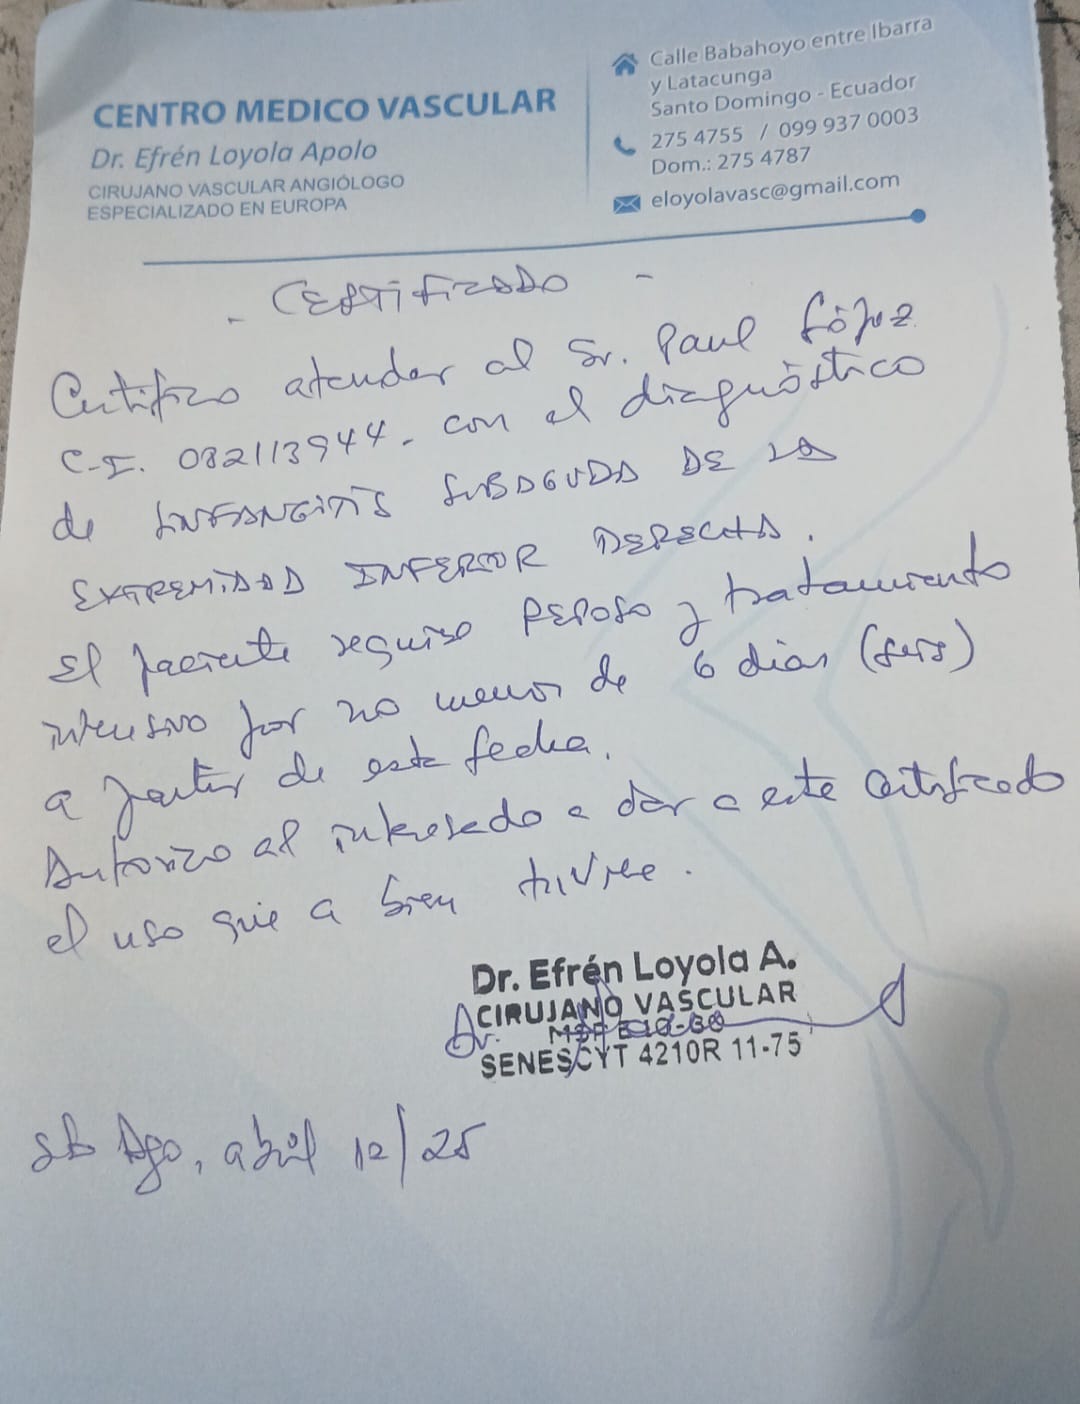 CENTRO MEDICO VASCULAR
Dr. Efrén Loyola Apolo
CIRUJANO VASCULAR ANGIÓLOGO
ESPECIALIZADO EN EUROPA
Calle Babahoyo entre Ibarra
y Latacunga
Santo Domingo - Ecuador
275 4755 / 099 937 0003
Dom.: 275 4787
eloyolavasc@gmail.com
- Certificado -
Certifico atender al Sr. Paul López
C.I. 082113944. con el diagnóstico
de LINFANGITIS SUBAGUDA DE LA
EXTREMIDAD INFERIOR DERECHA.
El paciente requiere REPOSO y tratamiento
intensivo por no menor de 6 días (seis)
a partir de esta fecha.
Autorizo al interesado a dar a este certificado
el uso que a bien tuviere.
Dr. Efrén Loyola A.
CIRUJANO VASCULAR
SENESCYT 4210R 11-75
abril 12/25